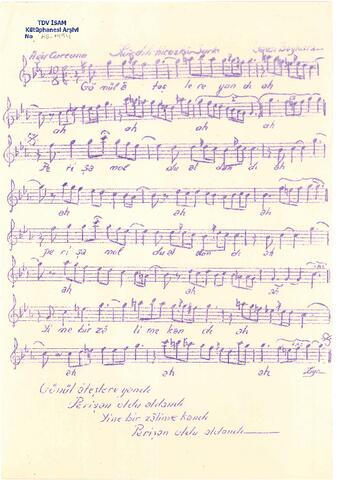 TDV İSAM
Kütüphanesi Arşivi
No
Ağır Curcuna
Gö nül a teş le re yan dı ah
ah ah ah
Pe ri şa nol du al dan dı ah
ah ah ah
pe ri şa nol du al dan dı ah
ah ah ah
Yi ne bir zâ li me kan dı ah
ah ah ah
Gönül ateşlere yandı
Perişan oldu aldandı
Yine bir zâlime kandı
Perişan oldu aldandı